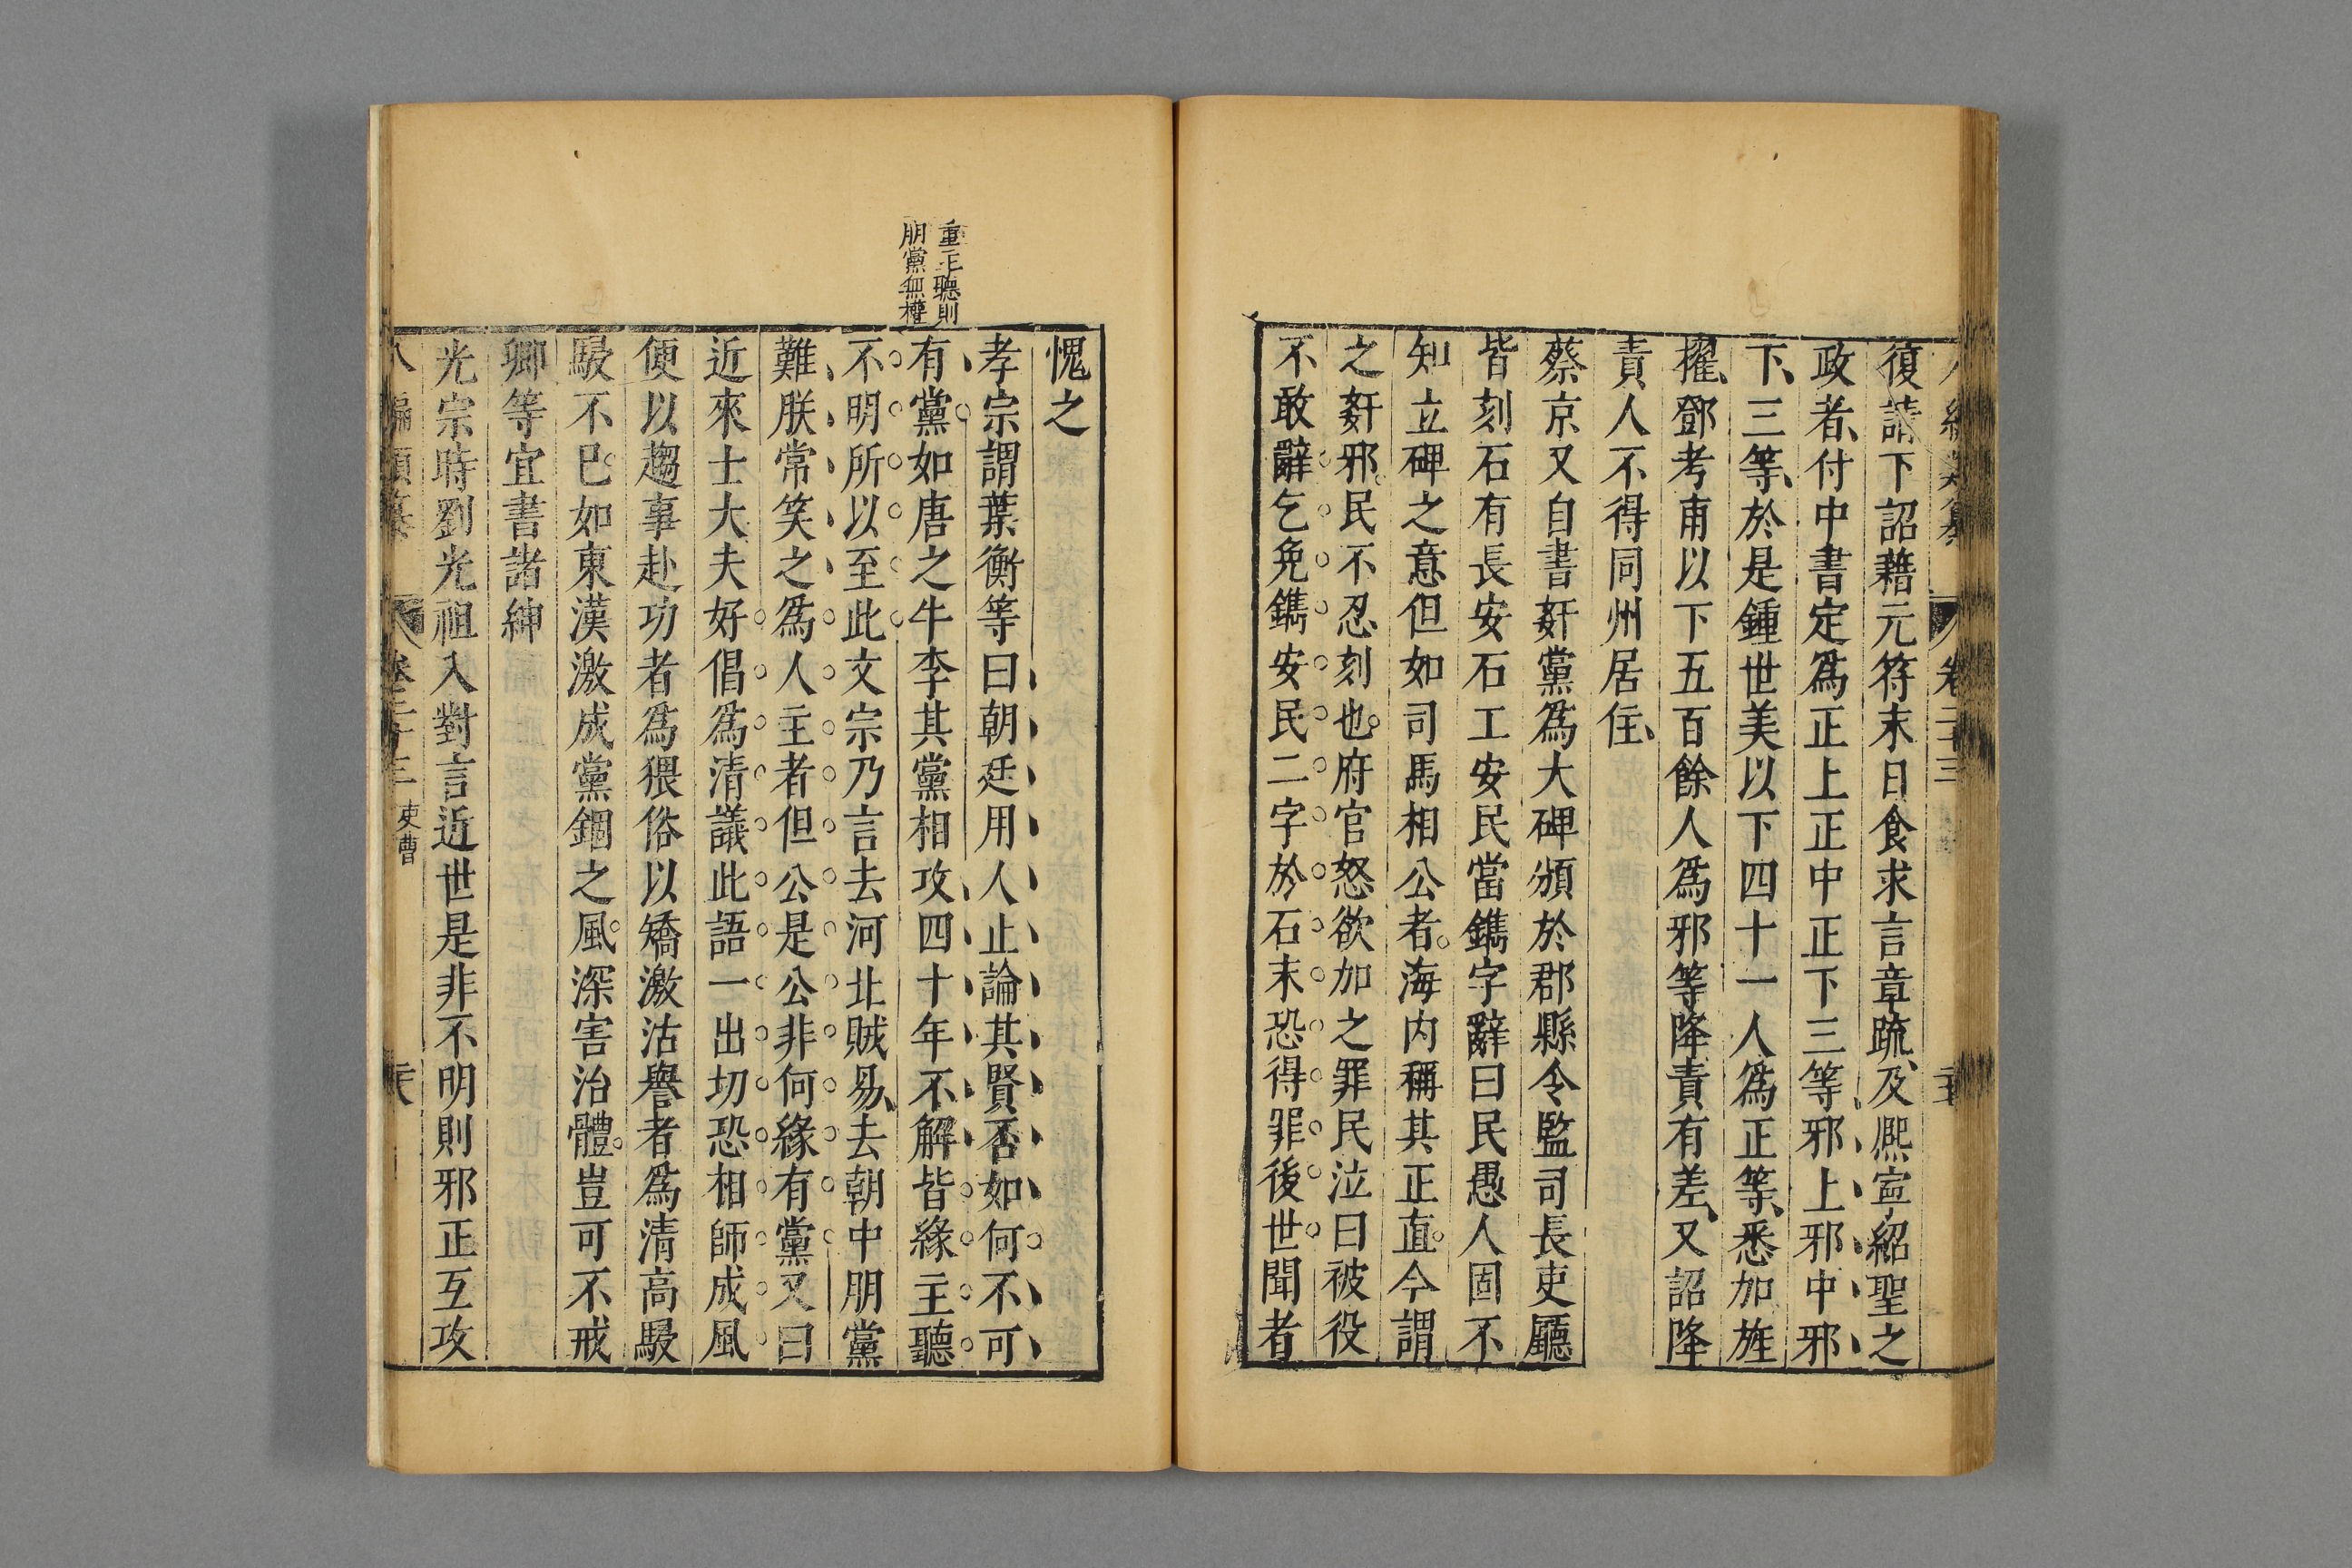 復請下詔藉元符末日食求言章疏及熈寧紹聖之
政者付中書定爲正上正中正下三等邪上邪中邪
下三等於是鍾世美以下四十一人爲正等悉加旌
擢鄧考甫以下五百餘人爲邪等降責有差又詔降
責人不得同州居住
蔡京又自書姧黨爲大碑頒於郡縣令監司長吏廳
皆刻石有長安石工安民當鐫字辭曰民愚人固不
知立碑之意但如司馬相公者海内稱其正直今謂
之姧邪民不忍刻也府官怒欲加之罪民泣曰被役
不敢辭乞免鐫安民二字於石末恐得罪後世聞者
愧之
重主聽則
朋黨無權
孝宗謂葉衡等曰朝廷用人止論其賢否如何不可
有黨如唐之牛李其黨相攻四十年不解皆緣主聽
不明所以至此文宗乃言去河北賊易去朝中朋黨
難朕常笑之爲人主者但公是公非何緣有黨又曰
近來士大夫好倡爲清議此語一出切恐相師成風
便以趨事赴功者爲猥俗以矯激沽譽者爲清高駸
駸不已如東漢激成黨錮之風深害治體豈可不戒
卿等宜書諸紳
光宗時劉光祖入對言近世是非不明則邪正互攻
八編類纂 卷二十三 吏曹